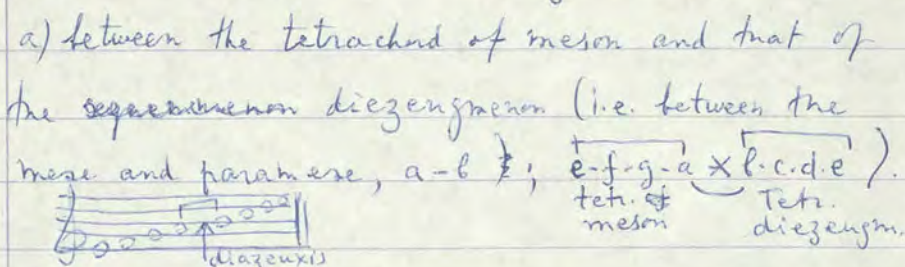 a) between the tetrachord of meson and that of
the diezeugmenon (i.e. between the
mese and paramese, a-b ; e-f-g-a X b.c.d.e ).
tetr. of Tetr.
meson diezeugm.
diazeuxis